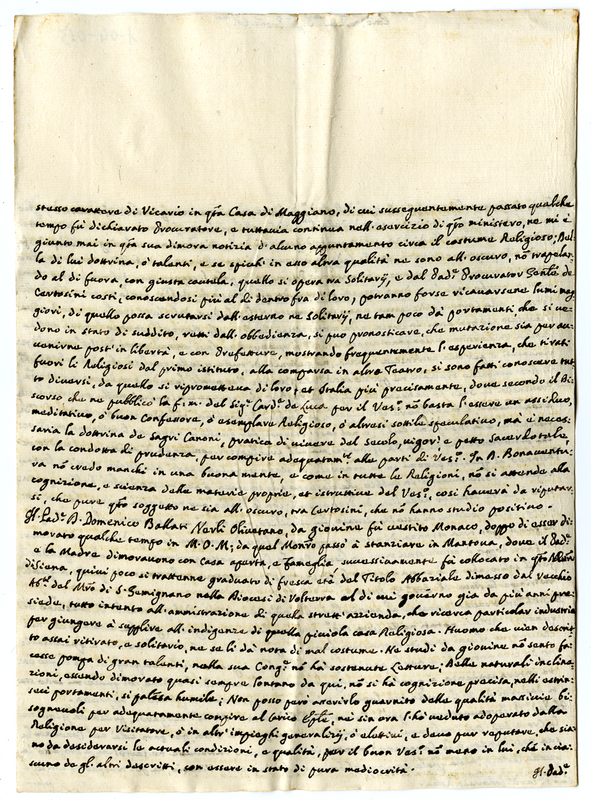 stesso carattere di Vicario in qsta Casa di Maggiano, di cui susseguentemente passato qualche
tempo fù dichiarato Procuratore, e tuttavia continua nell'esercizio di qsto ministero, ne mi è
giunto mai in qsta sua dimora notizia d'alcuno appuntamento circa il costume Religioso; Del-
la di lui dottrina, ò talenti, e se spichi in esso altra qualità ne sono all'oscuro, nõ trapelan-
do al di fuora, con giusta cautela, quello si opera tra Solitarÿ, e dal Pad.e Procurator Gen̄le de
Certosini costì, conoscendosi più al di dentro fra di loro, potranno forse ricavarsene lumi mag-
giori, di quello possa scrutarsi dall'esterno ne Solitarÿ, ne tam poco da portamenti che si ve-
dono in stato di suddito, retti dall'obbedienza, si può pronosticare, che mutazione sia per av-
venirne post'in libertà, e con Prefetture, mostrando frequentemente l'esperienza, che tirati
fuori li Religiosi dal primo istituto, alla comparsa in altro Teatro, si sono fatti conoscere tut-
to diversi, da quello si riprometteva di loro; et Italia più precisamente, dove secondo il Di-
scorso che ne pubblicò la f: m: del Sig.r Card.l de Luca per il Ves.o nõ basta l'essere un assiduo,
meditativo, ò buon Confessore, ò esemplare Religioso, ò altresì sottile speculativo, mà è neces-
saria la dottrina de Sagri Canoni, pratica di vivere del secolo, vigore e petto Sacerdotale,
con la condotta di prudenza, per compire adequatam.te alle parti di Ves.o In D. Bonaventu-
ra nõ credo manchi in una buona mente, e come in tutte le Religioni, nõ si attende alla
cognizione, e scienza delle materie proprie, et istruttive del Ves.o, così haverà da riputar-
si, che pure qsto soggetto ne sia all'oscuro, tra Certosini, che nõ hanno studio positivo.
Il Pad.e D. Domenico Ballati Nerli Olivetano, da giovine fù vestito Monaco, doppo di esser di-
morato qualche tempo in M. O. M; da quel Mon̄ro passò à stanziare in Mantova, dove il Pad.e
e la Madre dimoravono con Casa aperta, e famiglia, successivamente fù collocato in qsto
di Siena, quivi poco si trattenne graduato di fresca età del Titolo Abbaziale dimesso dal vecchio
Ab.e del Mr̄o di S: Gemignano nella Diocesi di Volterra al di cui governo già da più anni pre-
siede, tutto intento all'amnistrazione di quella strett'azzienda, che ricerca particolar industria
per giungere à supplire all'indigenze di quella picciola casa Religiosa. Huomo che vien descrit-
to assai ritirato, e solitario, ne se li dà nota di mal costume. Ne studi da giovine nõ sento fa-
cesse pompa di gran talenti, nella sua Cong.e nõ hà sostenute Letture; Delle naturali inclina-
zioni, essendo dimorato quasi sempre lontano da qui, nõ si hà cognizione precisa, nelli estrin-
seci portamenti, si palesa humile; Non posso però asserirlo guarnito delle qualità massicie bi-
sognevoli per adequatamente compire al Carico Ep̄le, ne sin ora l'hò veduto adoperato dalla
Religione per Visitatore, ò in altr'impieghi generalizÿ, ò elettivi, e devo pur reputare, che sia-
no da desiderarsi le attuali condizioni, e qualità, per il buon Ves.o nõ meno in lui, che in cia-
scuno de gl'altri descritti, con essere in stato di pura mediocrità.
Il Pad.e